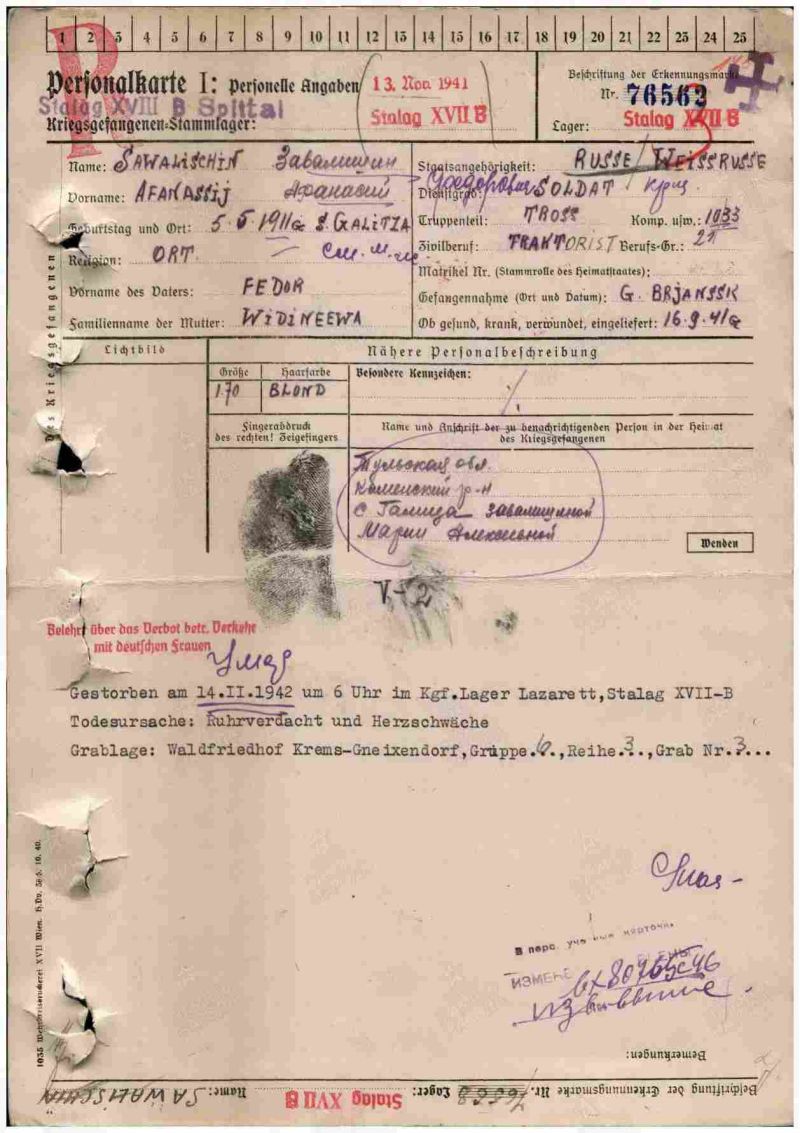 1 2 3 4 5 6 7 8 9 10 11 12 13 14 15 16 17 18 19 20 21 22 23 24 25
R
Personalkarte I: Personelle Angaben
13. Nov. 1941
Beschriftung der Erkennungsmarke
Nr. 76562
Stalag XVIII B Spittal
Kriegsgefangenen-Stammlager: Stalag XVII B
Lager: Stalag XVII B
Name: SAWALISCHIN Завалишин
Staatsangehörigkeit: RUSSE / WEISSRUSSE
Vorname: AFANASSIJ Афанасий Федорович
Dienstgrad: SOLDAT
Geburtstag und Ort: 5.5.1911 S. GALITZA
Truppenteil: TROSS Komp. usw.: 1033
Religion: ORT.
Zivilberuf: TRAKTORIST Berufs-Gr.: 21
Matrikel Nr. (Stammrolle des Heimatstaates):
Vorname des Vaters: FEDOR
Gefangennahme (Ort und Datum): G. BRJANSSK
Familienname der Mutter: WIDINEEWA
Ob gesund, krank, verwundet, eingeliefert: 16.9.41
Des Kriegsgefangenen
Lichtbild
Nähere Personalbeschreibung
Größe Haarfarbe Besondere Kennzeichen:
1.70 BLOND
Fingerabdruck
des rechten! Zeigefingers
Name und Anschrift der zu benachrichtigenden Person in der Heimat
des Kriegsgefangenen
Тульская обл.
Каменский р-н
с Галица Завалишиной
Марии Алексевной
Wenden
V-2
Belehrt über das Verbot betr. Verkehr
mit deutschen Frauen
Умер
Gestorben am 14.II.1942 um 6 Uhr im Kgf.Lager Lazarett,Stalag XVII-B
Todesursache: Ruhrverdacht und Herzschwäche
Grablage: Waldfriedhof Krems-Gneixendorf,Gruppe.6.,Reihe.3..,Grab Nr.3...
В перс. учетные карточк.
1035 Wehrkreisdruckerei XVII Wien.
Bemerkungen:
Beschriftung der Erkennungsmarke Nr. 76562 Lager: Stalag XVII B Name: SAWALISCHIN